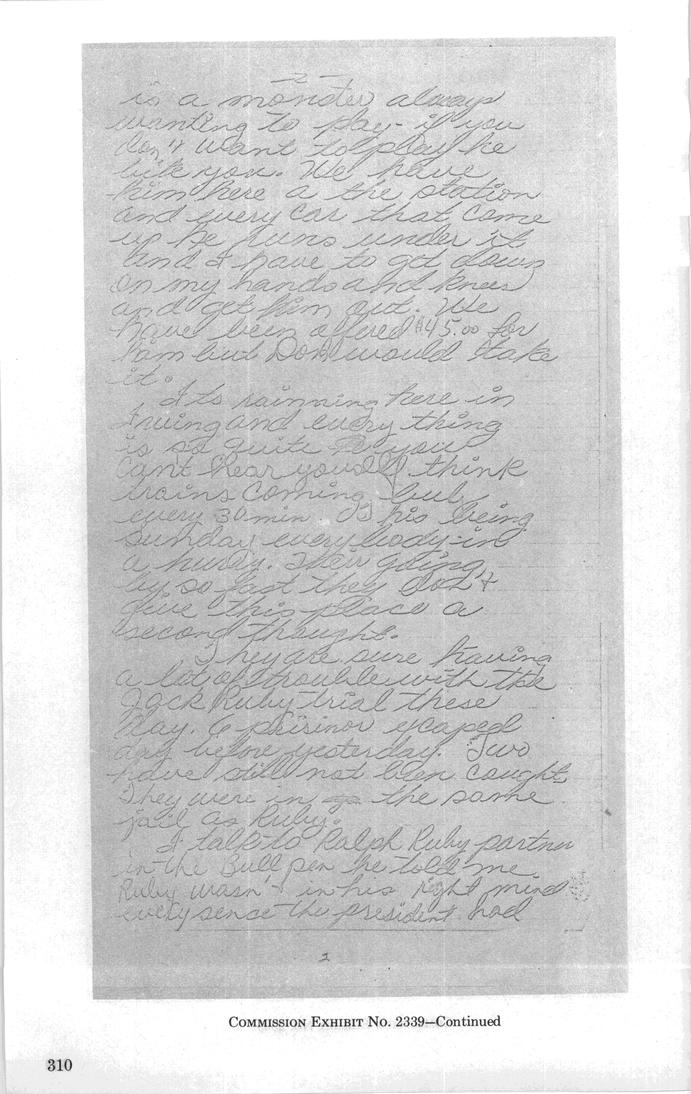 is a monster always
wanting to play- if you
don't want to play he
bite you. We have
him here a the station
and every car that come
up he runs under it
and I have to get down
on my hands and knees
and get him out. We
have been offered $45.00 for
ham but Don would take
it.
Its rainning here in
Irving and every thing
is so quite you
cant hear yourself think
trains coming but
every 30 min This being
sunday everybody in
a hurry. Their going
by so fast they don't
give this place a
second thought.
They are sure having
a lot of trouble with the
Jack Ruby trial these
day. 6 prisinor escaped
day before yesterday. Two
have still not been caught
They were in the same
jail as Ruby.
I talk to Ralph Ruby partner
in the Bull pen he told me
Ruby wasn't in his right mind
every sence the president had
2
COMMISSION EXHIBIT No. 2339—Continued
310